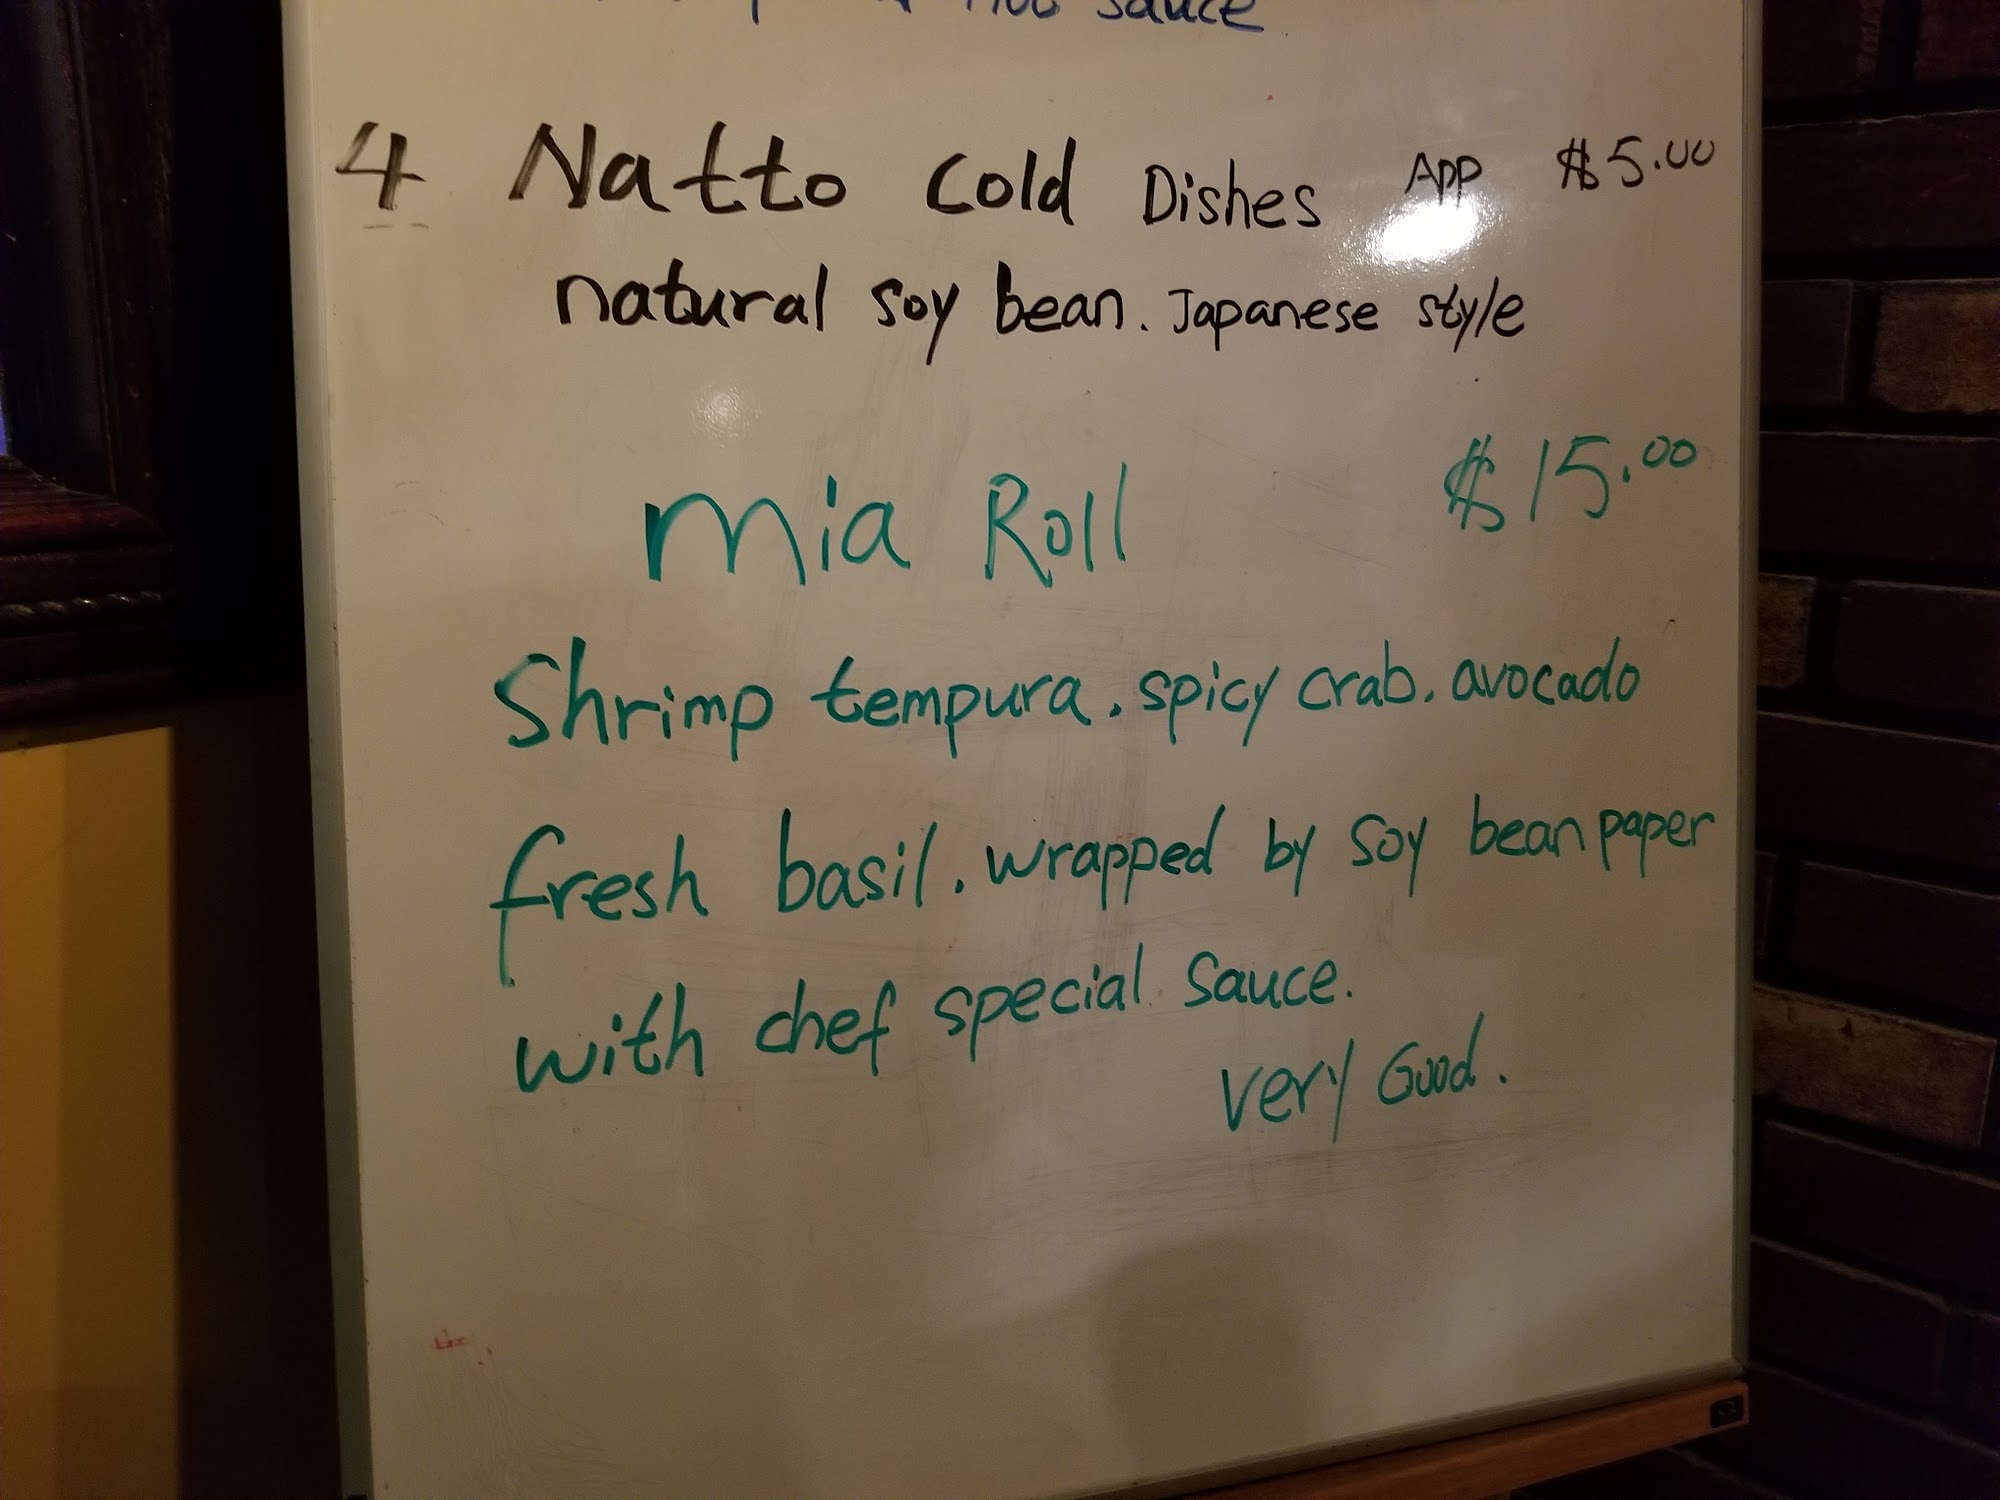 sauce
4 Natto Cold Dishes App $5.00
natural soy bean. Japanese style
Mia Roll $15.00
Shrimp tempura. spicy crab. avocado
fresh basil. wrapped by soy bean paper
with chef special sauce.
very Good.